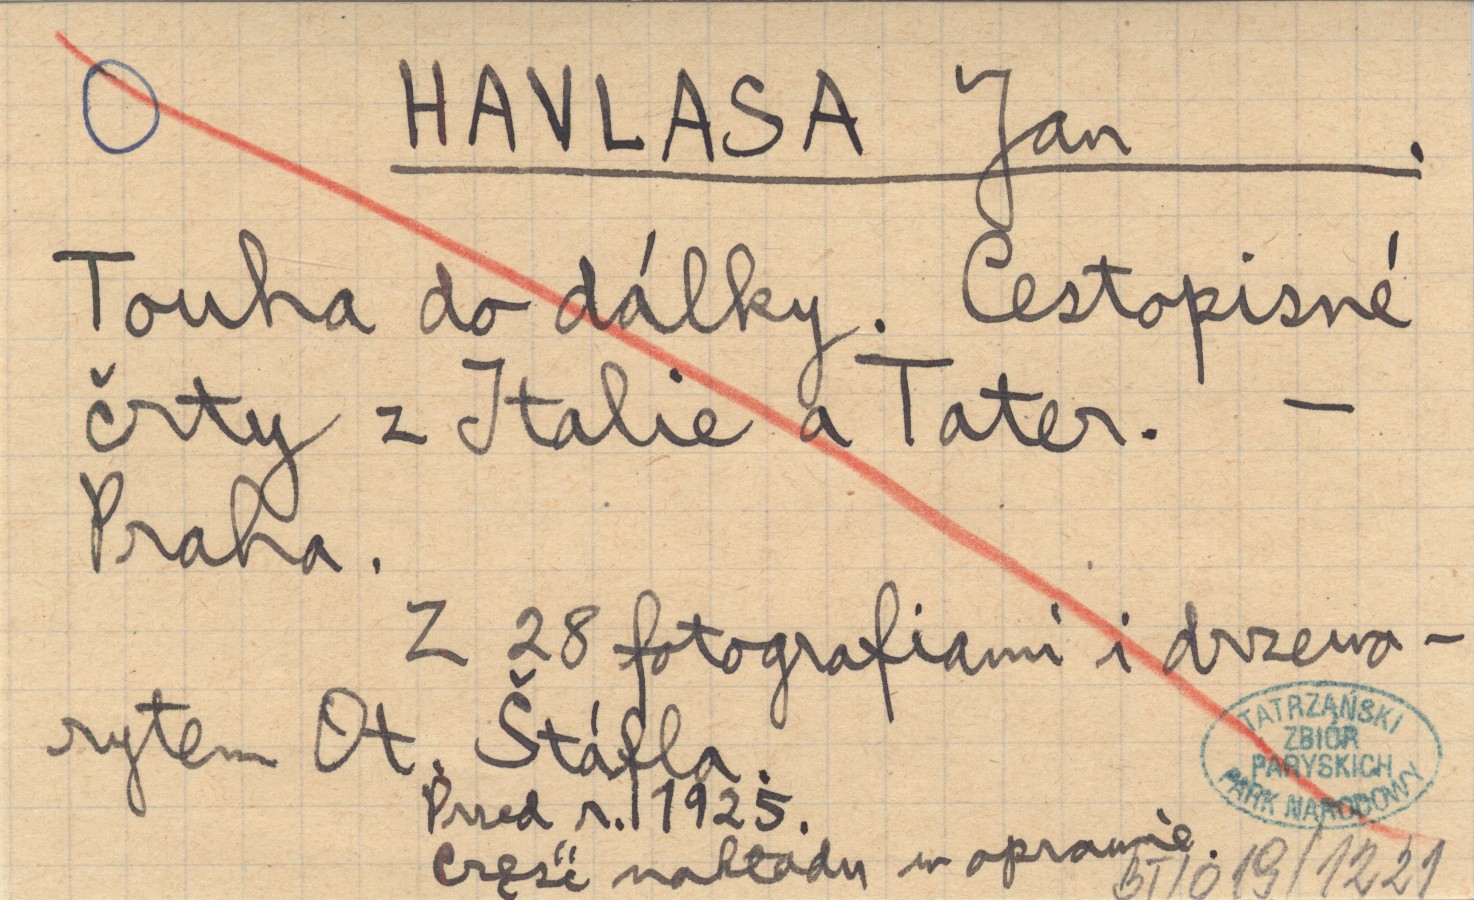 HAVLASA Jan.
Touha do dálky. Cestopisné
črty z Italie a Tater. —
Praha.
Z 28 fotografiami i drzewo-
rytem Ot. Štáfla.
Przed r. 1925.
Część nakładu w oprawie.
TATRZAŃSKI
ZBIÓR
PARYSKICH
PARK NARODOWY
BT/019/1221